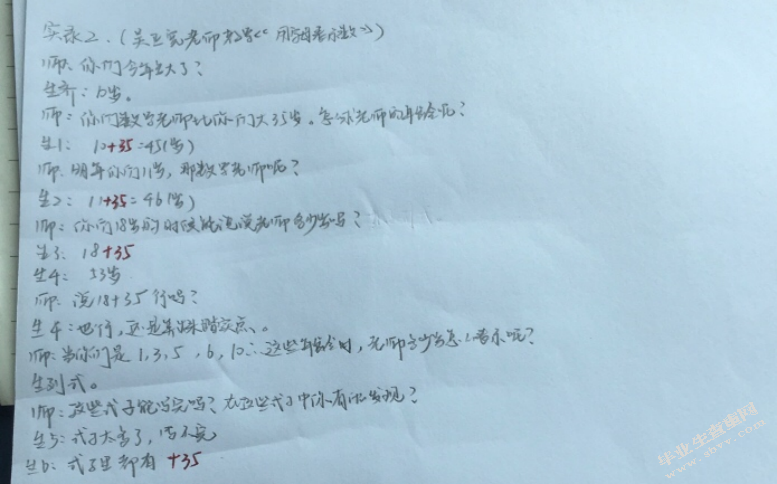 实录2.(吴正宪老师教学《用字母表示数》)
师:你们今年多大了?
生齐:10岁。
师:你们数学老师比你们大35岁。怎么求老师的年龄呢?
生1:10+35=45(岁)
师:明年你们11岁,那数学老师呢?
生2:11+35=46(岁)
师:你们18岁的时候能说说老师多少岁吗?
生3:18+35
生4:53岁
师:说18+35行吗?
生4:也行,还是算出来踏实点。
师:当你们是1,3,5,6,10…这些年龄时,老师多少岁怎么表示呢?
生列式。
师:这些式子能写完吗?在这些式子中你有何发现?
生5:式子太多了,写不完
生6:式子里都有+35
毕业生查重网
www.abyy.com